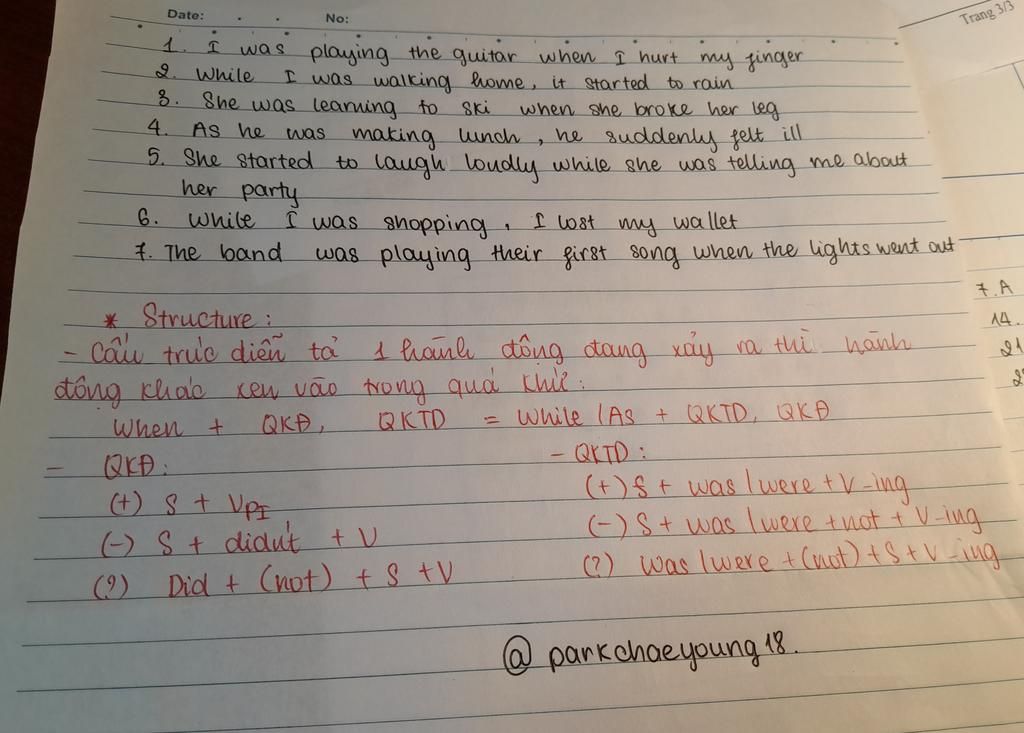 Date: . . No:
Trang 3/3
1. I was playing the guitar when I hurt my finger
2. While I was walking home, it started to rain
3. She was learning to ski when she broke her leg
4. As he was making lunch, he suddenly felt ill
5. She started to laugh loudly while she was telling me about
her party
6. While I was shopping, I lost my wallet
7. The band was playing their first song when the lights went out
* Structure:
- Cấu trúc diễn tả 1 hành động đang xảy ra thì hành
động khác xen vào trong quá khứ:
When + QKĐ, QKTD = While /As + QKTD, QKĐ
- QKĐ:
(+) S + VPI
(-) S + didn't + V
(?) Did + (not) + S + V
- QKTD:
(+) S + was / were + V-ing
(-) S + was / were + not + V-ing
(?) Was / were + (not) + S + V-ing
@ parkchaeyoung18.
7. A
14.
21